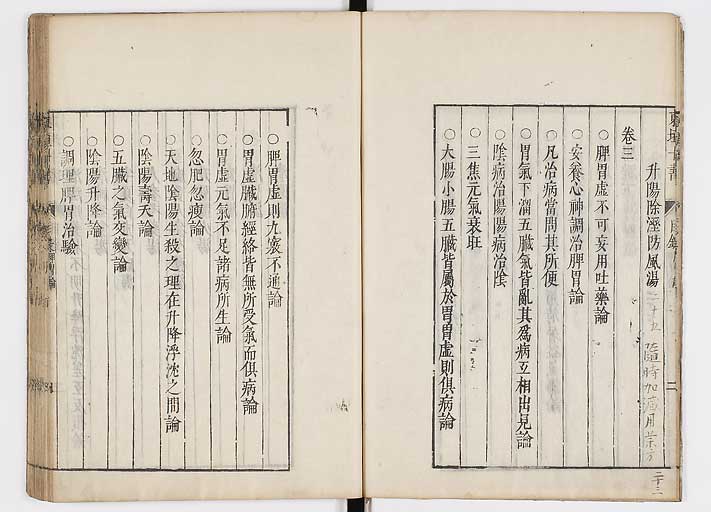 升陽除溼防風湯 二十五 隨時加減用藥方 二十二
卷三
○脾胃虛不可妄用吐藥論
○安養心神調治脾胃論
○凡治病當問其所便
○胃氣下溜五臟氣皆亂其爲病互相出見論
○陰病治陽陽病治陰
○三焦元氣衰旺
○大腸小腸五臟皆屬於胃胃虛則俱病論
○脾胃虛則九竅不通論
○胃虛臟腑經絡皆無所受氣而俱病論
○胃虛元氣不足諸病所生論
○忽肥忽瘦論
○天地陰陽生殺之理在升降浮沈之間論
○陰陽壽夭論
○五臟之氣交變論
○陰陽升降論
○調理脾胃治驗